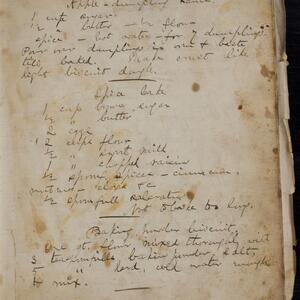 Apple dumpling sauce
½ cup sugar
½ " butter - br flour
spice - hot water - for 7 dumplings
Pour over dumplings in oven & baste
till baked. Make crust like
light biscuit dough.
Spice Cake
1 cup brown sugar
½ " butter
2 eggs
2 cups flour
½ " sour milk
1 " chopped raisin
½ spoon spices - cinnamon,
nutmeg - cloves &c
½ spoonfull saleratus
Baking powder biscuit.
One qt. flour, mixed thoroughly with
3 teaspoonfuls baking powder, salt,
lard, cold water enough
to mix.